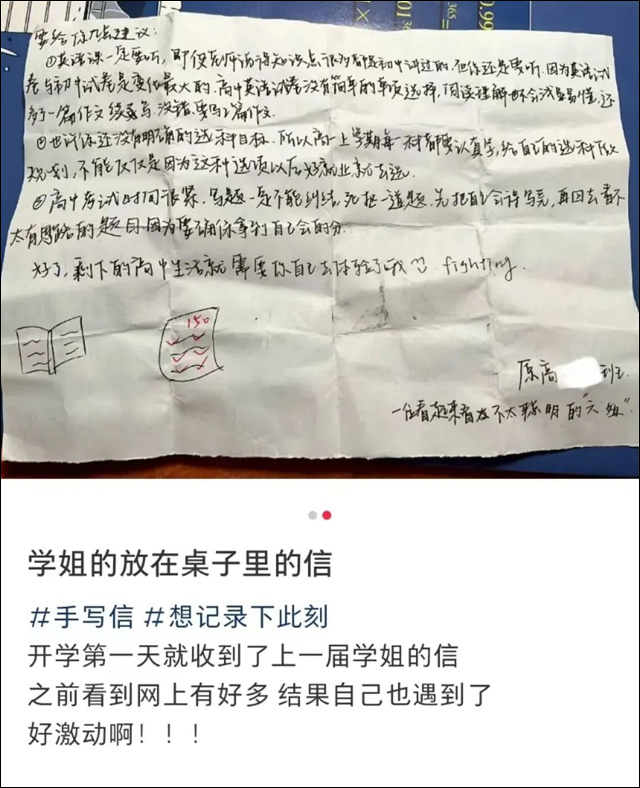 0.99
365
要给你几点建议:
①英语课一定要听,即使老师讲得知识点很多都是初中讲过的,但你还是要听,因为英语试
卷与初中试卷是变化最大的,高中英语试卷没有简单的单项选择,阅读理解也不会浅显易懂,还
多一篇作文续写,没错,要写2篇作文.
②也许你还没有明确的选科目标,所以高一上学期每一科都要认真学,给自己的选科做
规划,不能仅仅是因为这种选项以后好就业就去选.
③高中考试时间很紧,写题一定不能纠结,死抠一道题,先把自己会得写完,再回去看不
太有思路的题目,因为要确保拿到自己会的分.
好了,剩下的高中生活就需要你自己去体验了哦 fighting.
150
原高 班
一位看起来看在不太聪明的"六姐".
学姐的放在桌子里的信
#手写信 #想记录下此刻
开学第一天就收到了上一届学姐的信
之前看到网上有好多 结果自己也遇到了
好激动啊!!!